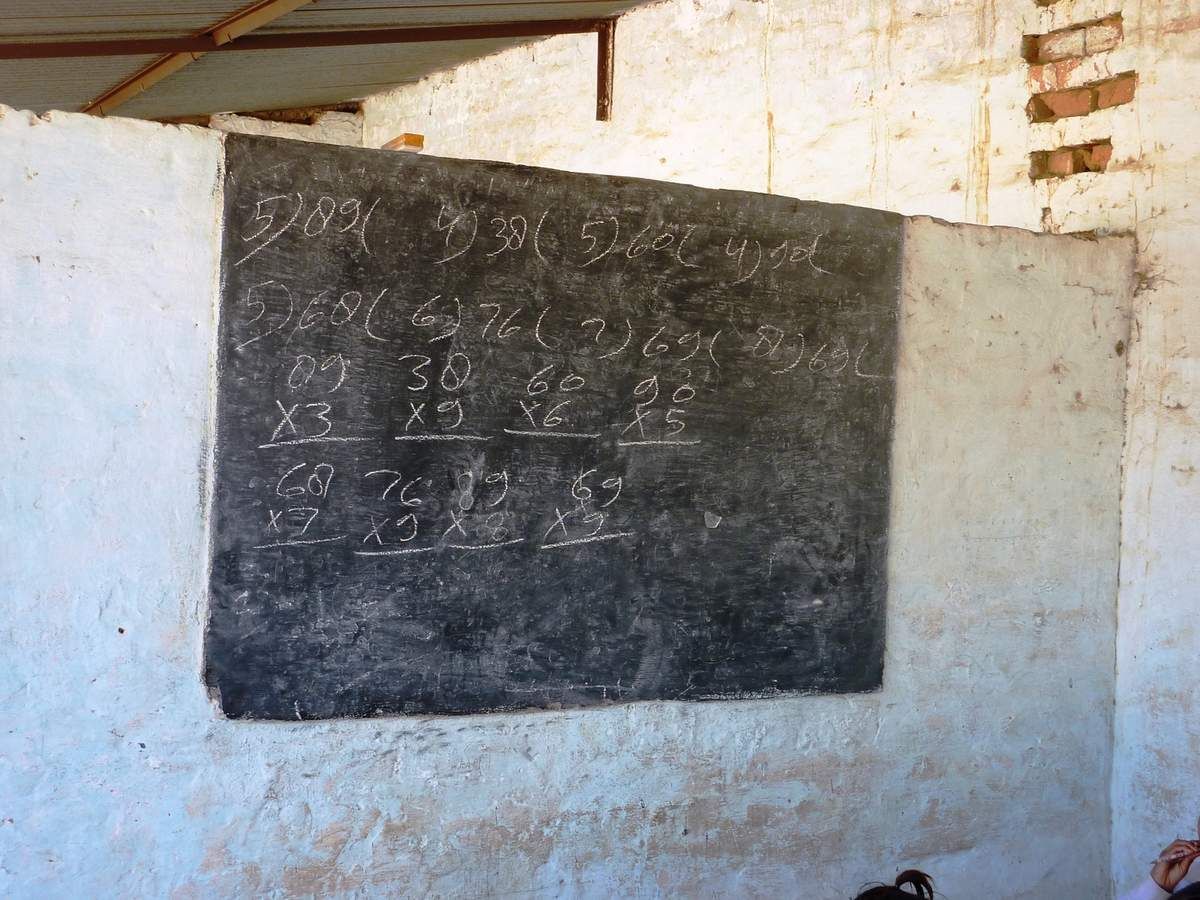 5)89( 4)38( 5)60( 4)90(
5)68( 6)76( 7)69( 8)69(
89 38 60 90
x3 x9 x6 x5
68 76 89 69
x7 x9 x8 x9